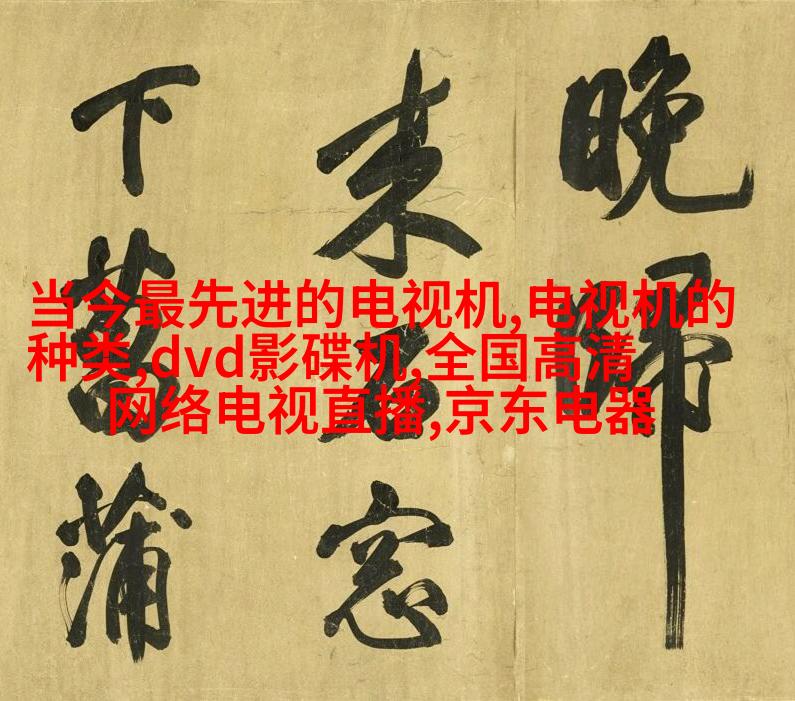 当今最先进的电视机,电视机的
种类,dvd影碟机,全国高清
网络电视直播,京东电器
晚歸
来石窓
下菖蒲